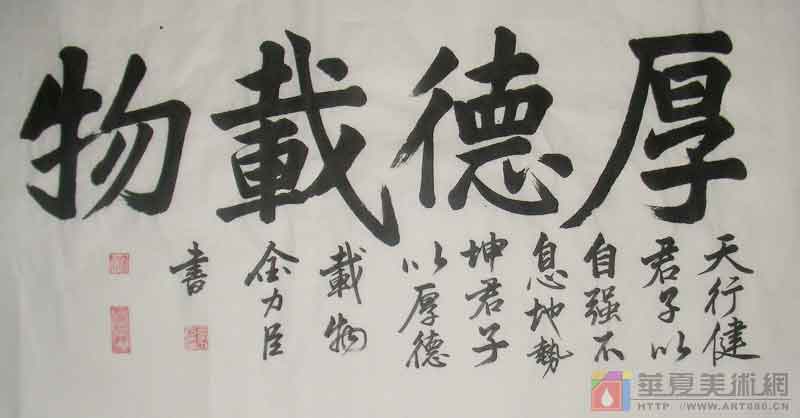 厚德載物
天行健
君子以
自强不
息地勢
坤君子
以厚德
載物
金力臣
書
華夏美術網
HTTP://WWW.ART086.CN